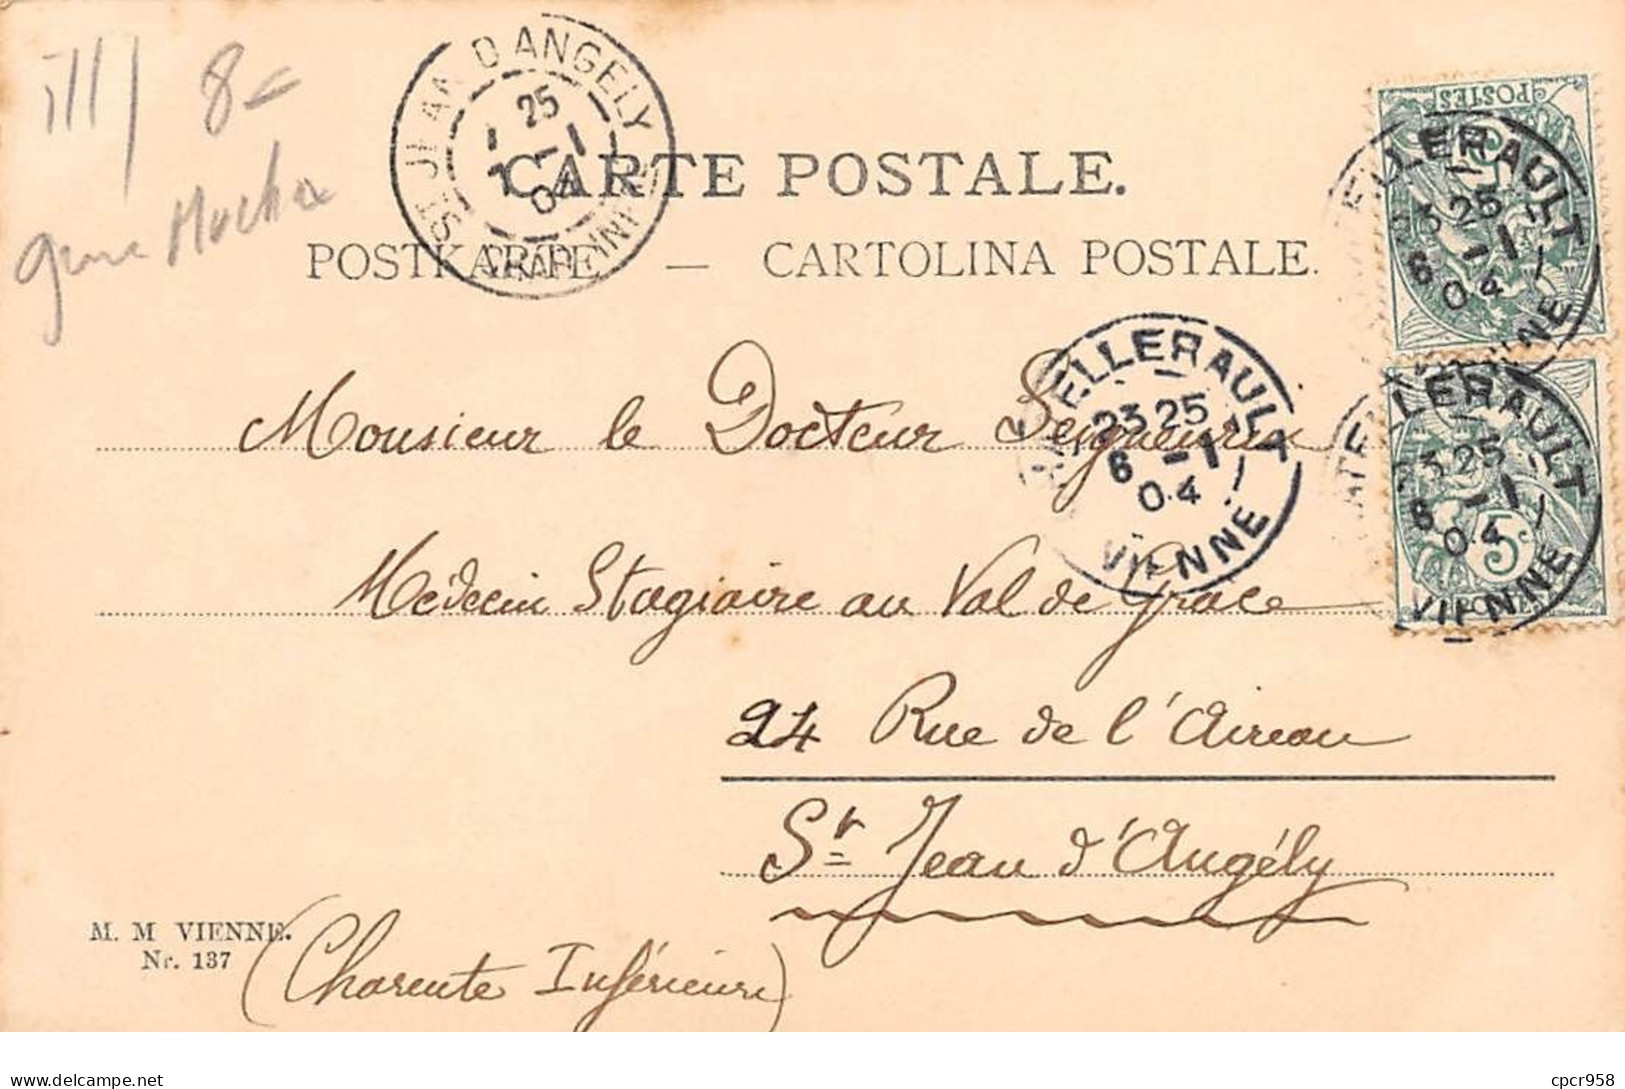 8=
genre Mucha
ST JEAN D'ANGELY
25
7 -1
04
CARTE POSTALE.
POSTKARTE — CARTOLINA POSTALE.
POSTES
CHATELLERAULT
23 25
6 -1
04
VIENNE
CHATELLERAULT
23 25
6 -1
04
VIENNE
CHATELLERAULT
23 25
6 -1
04
VIENNE
5c
Monsieur le Docteur Seigneurin
Médecin Stagiaire au Val de Grace
24 Rue de l'Aireau
St Jean d'Angély
(Charente Inférieure)
M. M VIENNE.
Nr. 137
cpcr958